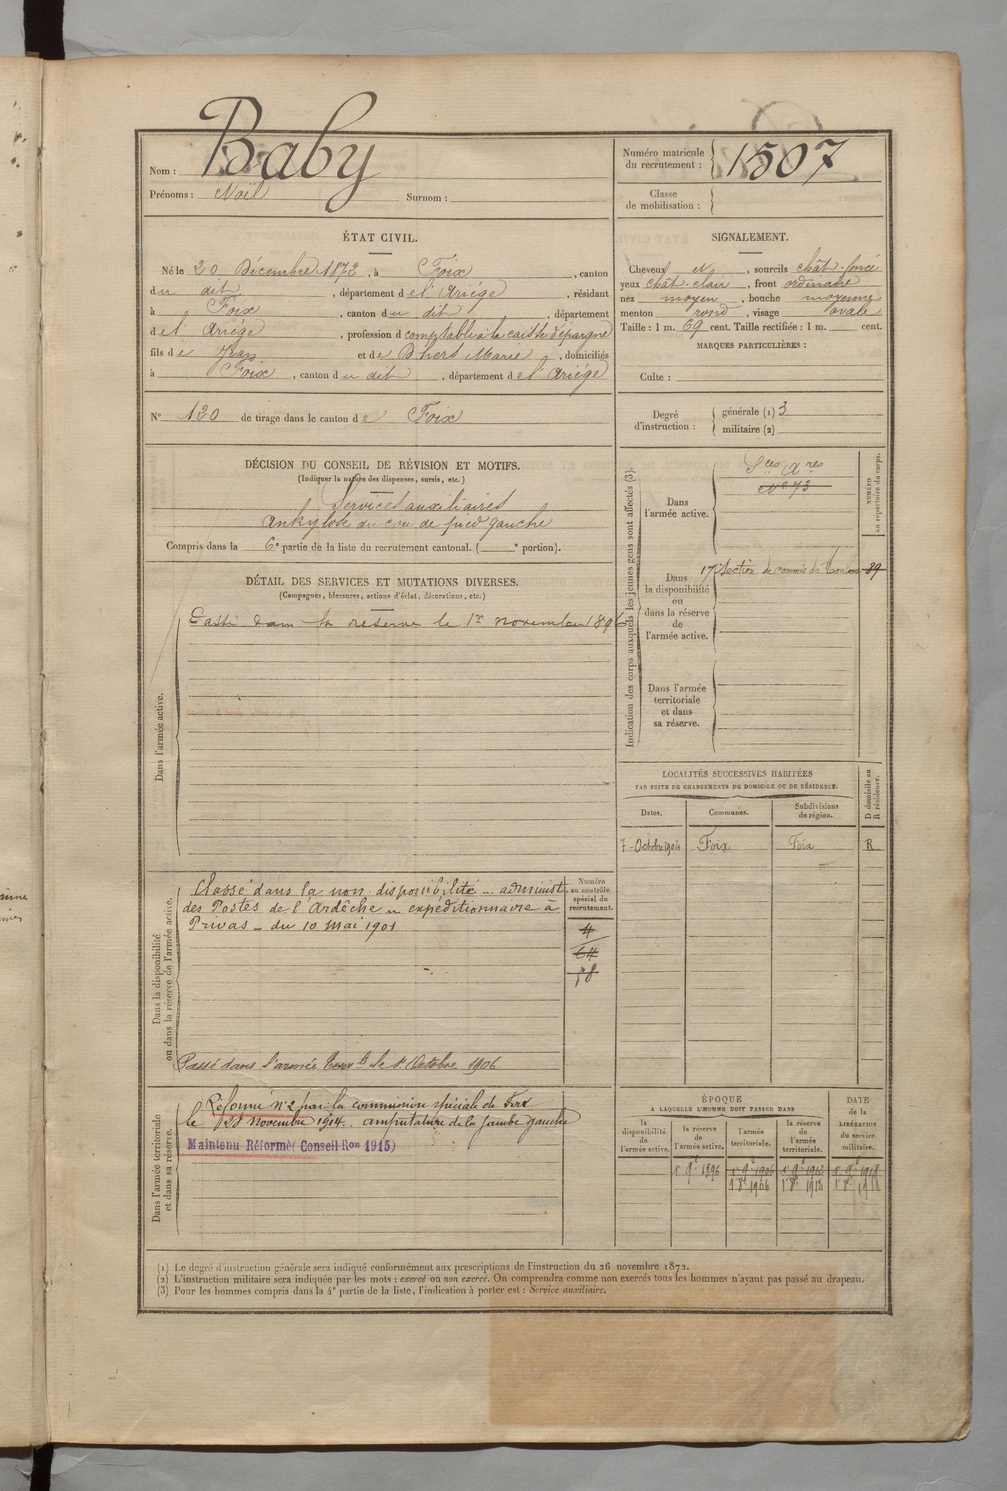 Baby
Nom :
Prénoms : Noël Surnom :
Numéro matricule
du recrutement : 1507
Classe
de mobilisation :
ÉTAT CIVIL.
Né le 20 Décembre 1872, à Foix, canton
du dit, département de l'Ariége, résidant
à Foix, canton du dit, département
de l'Ariége, profession d comptable à la caisse d'épargne
fils de Jean et de Dhers Marie, domiciliés
à Foix, canton du dit, département de l'Ariége
N° 120 de tirage dans le canton de Foix
SIGNALEMENT.
Cheveux et, sourcils chât. foncé
yeux chât. clair, front ordinaire
nez moyen, bouche moyenne
menton rond, visage ovale
Taille : 1 m. 69 cent. Taille rectifiée : 1 m. cent.
MARQUES PARTICULIÈRES :
Culte :
Degré
d'instruction :
générale (1) 3
militaire (2)
DÉCISION DU CONSEIL DE RÉVISION ET MOTIFS.
(Indiquer la nature des dispenses, sursis, etc.)
Services auxiliaires
Ankylose du cou de pied gauche
Compris dans la 6e partie de la liste du recrutement cantonal. ( e portion).
DÉTAIL DES SERVICES ET MUTATIONS DIVERSES.
(Campagnes, blessures, actions d'éclat, décorations, etc.)
Dans l'armée active.
Passé dans la réserve le 1er novembre 1896
Indication des corps auxquels les jeunes gens sont affectés (3).
NUMÉRO
au répertoire du corps.
Dans
l'armée active.
Sces Ares
N° 73
Dans
la disponibilité
ou
dans la réserve
de
l'armée active.
17e Section de commis de 89
Dans l'armée
territoriale
et dans
sa réserve.
LOCALITÉS SUCCESSIVES HABITÉES
PAR SUITE DE CHANGEMENTS DE DOMICILE OU DE RÉSIDENCE.
D domicile ou
R résidence.
Dates.
Communes.
Subdivisions
de région.
7 Octobre 1904 Foix Foix R
Dans la disponibilité
ou dans la réserve de l'armée active.
Classé dans la non disponibilité administ.
des Postes de l'Ardêche expéditionnaire à
Privas _ du 10 mai 1901
Passé dans l'armée Terrle le 1er Octobre 1906
Numéro
au contrôle
spécial du
recrutement.
4
64
58
Dans l'armée territoriale
et dans sa réserve.
Réformé n°2 par la commission spéciale de Foix
le 28 Novembre 1914. amputature de la jambe gauche
Maintenu Réformé (Conseil Ron 1915)
ÉPOQUE
À LAQUELLE L'HOMME DOIT PASSER DANS
la
disponibilité
de
l'armée active.
la réserve
de
l'armée active.
l'armée
territoriale.
la réserve
de
l'armée
territoriale.
DATE
de la
LIBÉRATION
du service
militaire.
1 9bre 1896 1 9bre 1906 1 9bre 1912 1 9bre 1918
1 8bre 1906 1 8bre 1912 1 8bre 1918
(1) Le degré d'instruction générale sera indiqué conformément aux prescriptions de l'instruction du 26 novembre 1872.
(2) L'instruction militaire sera indiquée par les mots : exercé ou non exercé. On comprendra comme non exercés tous les hommes n'ayant pas passé au drapeau.
(3) Pour les hommes compris dans la 4e partie de la liste, l'indication à porter est : Service auxiliaire.